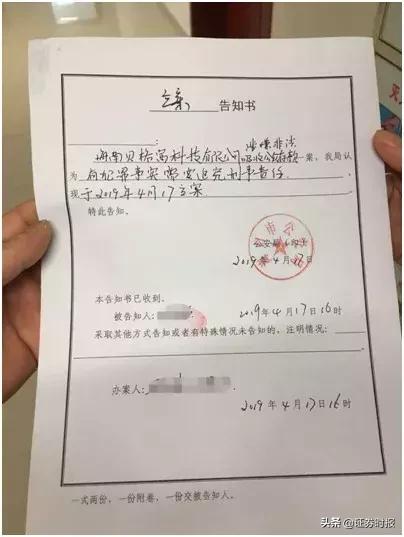 立案 告知书
海南贝格富科技有限公司涉嫌非法吸收公存款一案，我局认
为有犯罪事实需要追究刑事责任，
现于2019年4月17立案
特此告知。
公安局（印）
2019年4月17日
本告知书已收到。
被告知人：
2019年4月17日16时
采取其他方式告知或者有特殊情况未告知的，注明情况：
办案人：
2019年4月17日16时
一式两份，一份附卷，一份交被告知人。
头条 @证券时报